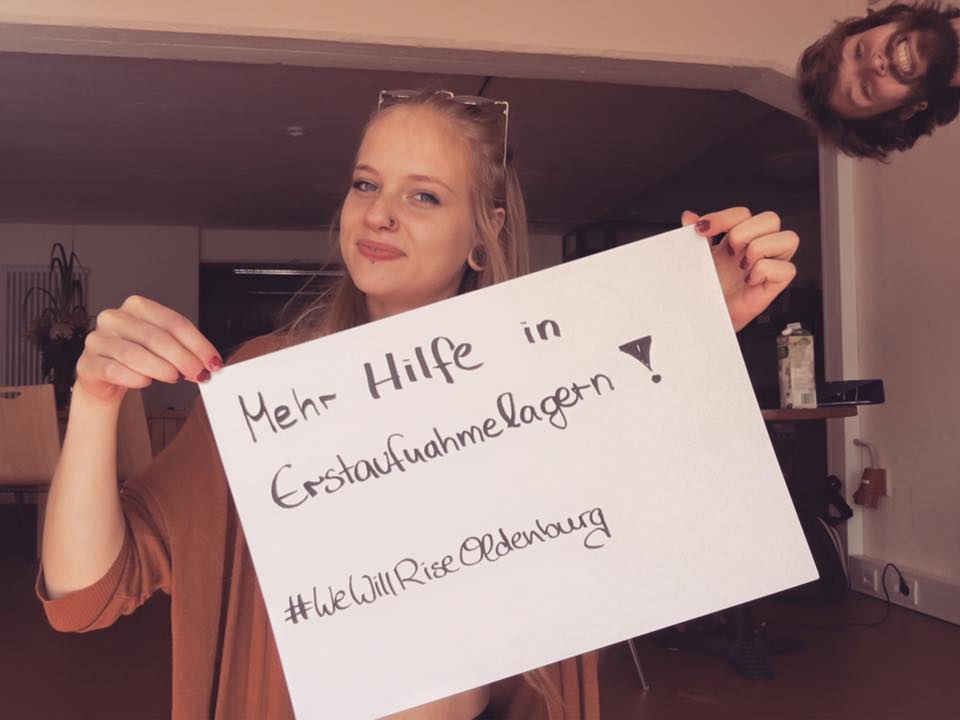 Mehr Hilfe in
Erstaufnahmelagern !
#WeWillRiseOldenburg